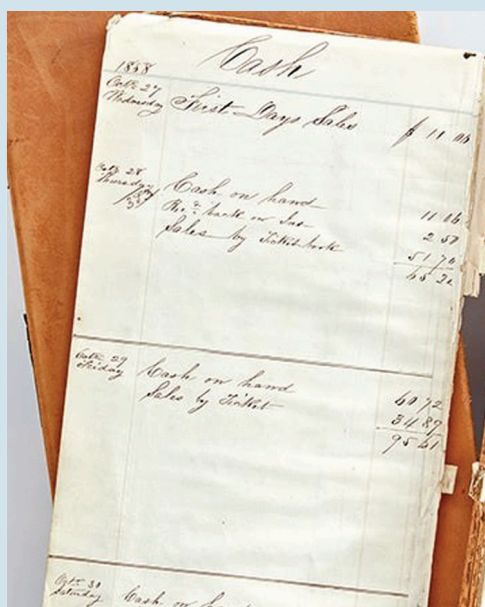 Cash
1858
Octr. 27
Wednesday First Days Sales $ 11 06
Octr. 28
Thursday
Cash on hand 11 06
Rec'd back on Ins 2 50
Sales by Ticket book 51 70
65 26
Octr. 29
Friday
Cash on hand 60 72
Sales by Ticket 34 89
95 61
Octr. 30
Saturday Cash on hand